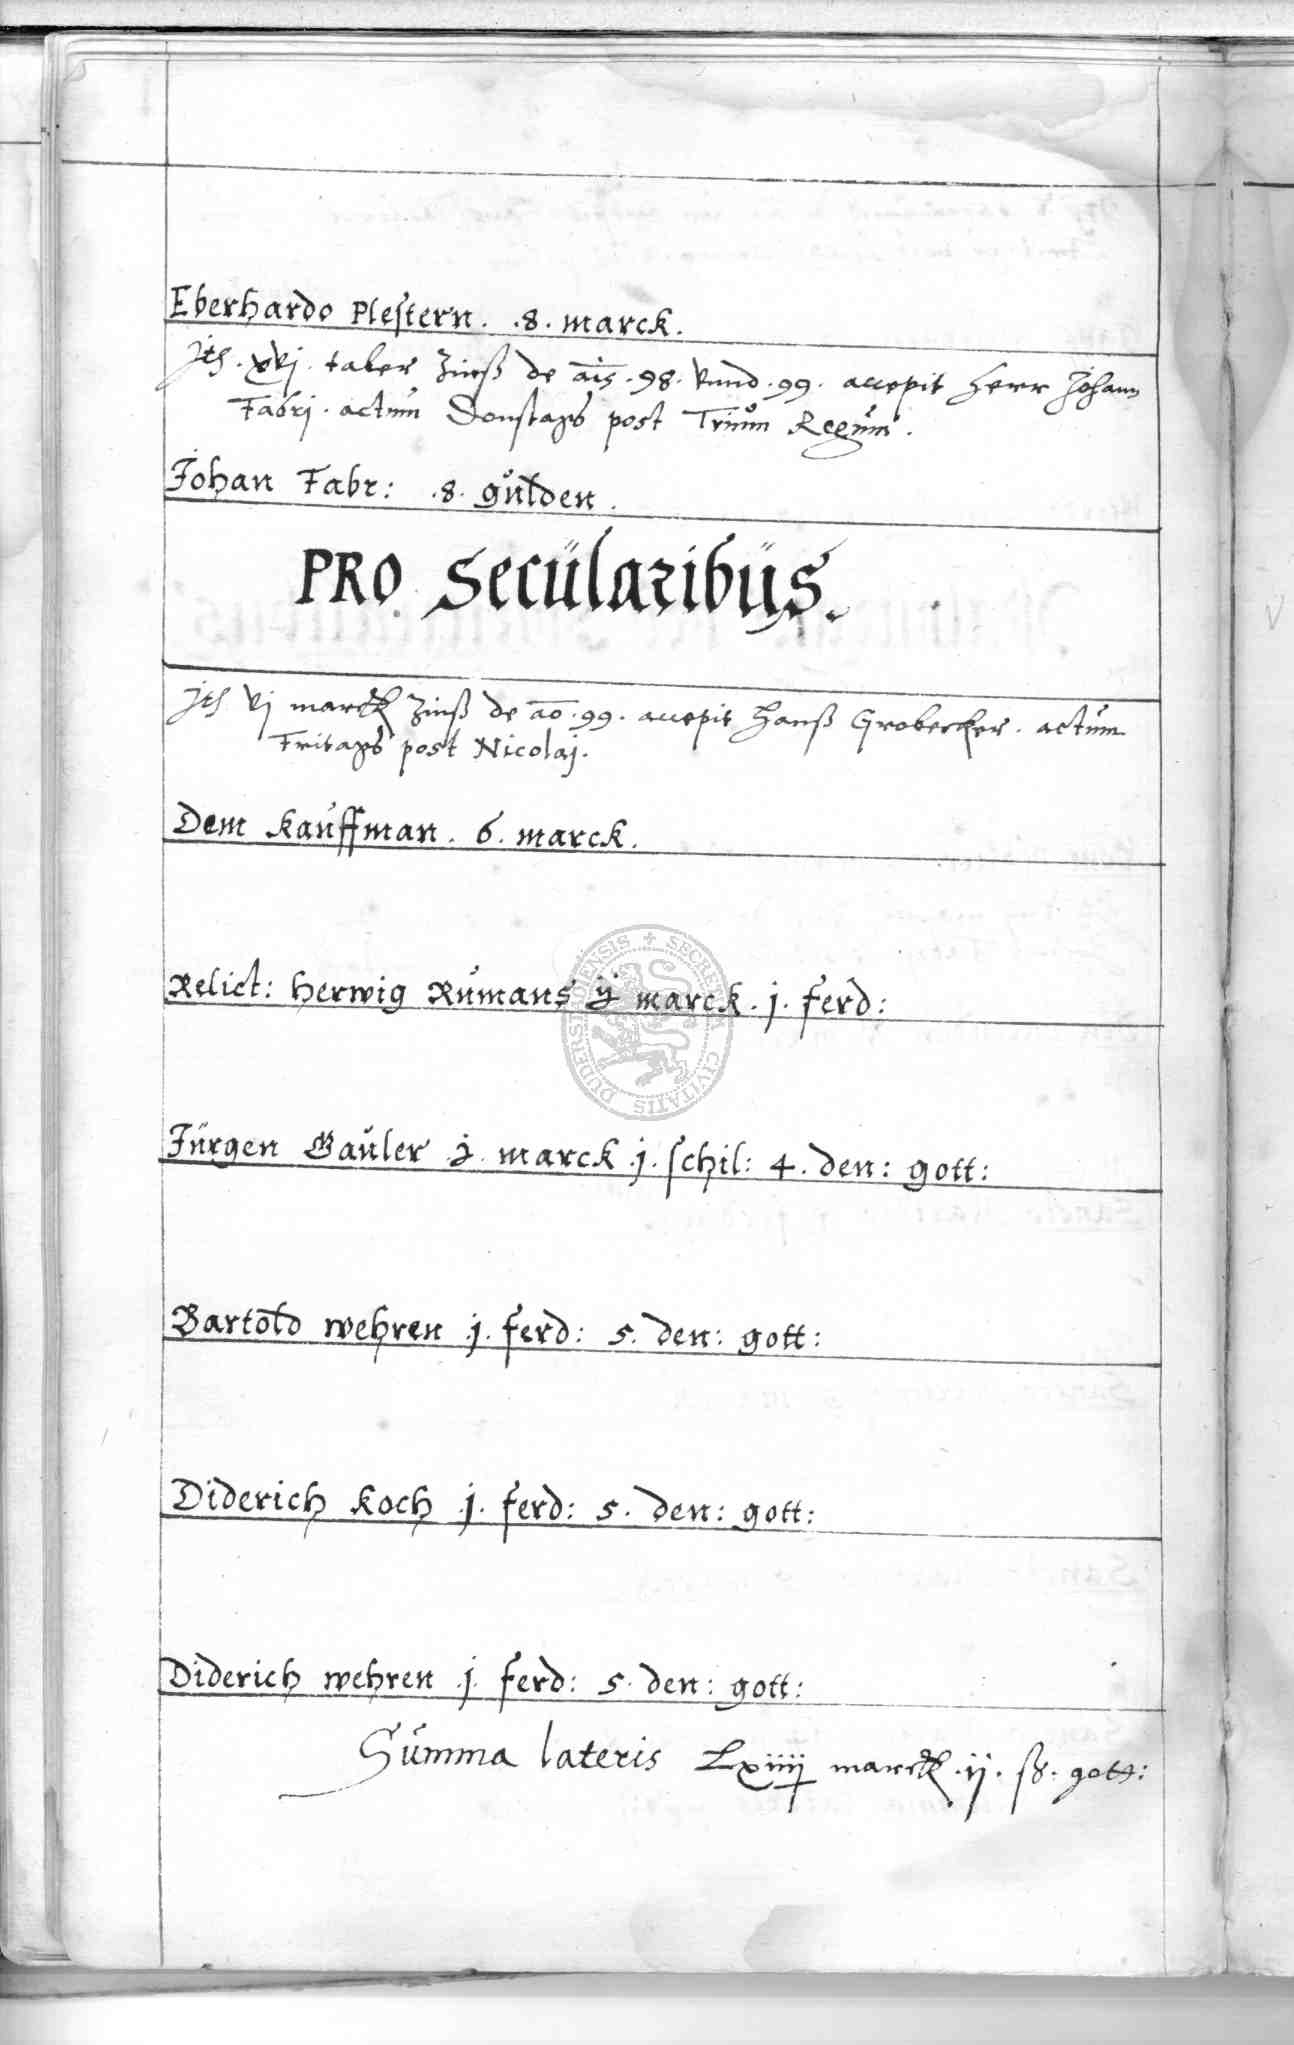 Eberhardo Plestern. .8. marck.
Jtß. xvj. taler Zinß de aīs .98. vnnd .99. accepit Herr Johann
Fabrj. actum Donstags post Trium Regum.
Johan Fabr: .8. gulden.
PRO Secülaribüs.
Jtß vj marck Zinß de ao .99. accepit Hanß Grobecker. actum
Fritags post Nicolaj.
Dem Kauffman. 6. marck.
Relict: Herwig Rumans ij marck. j. ferd:
Jürgen Gauler .j. marck .j. schil: 4. den: gott:
Bartold wehren .j. ferd: 5. den: gott:
Diderich Koch .j. ferd: 5. den: gott:
Diderich wehren .j. ferd: 5. den: gott:
Summa lateris Lxiiij marck .ij. ß. gott:
SECRETUM CIVITATIS DUDERSTADENSIS